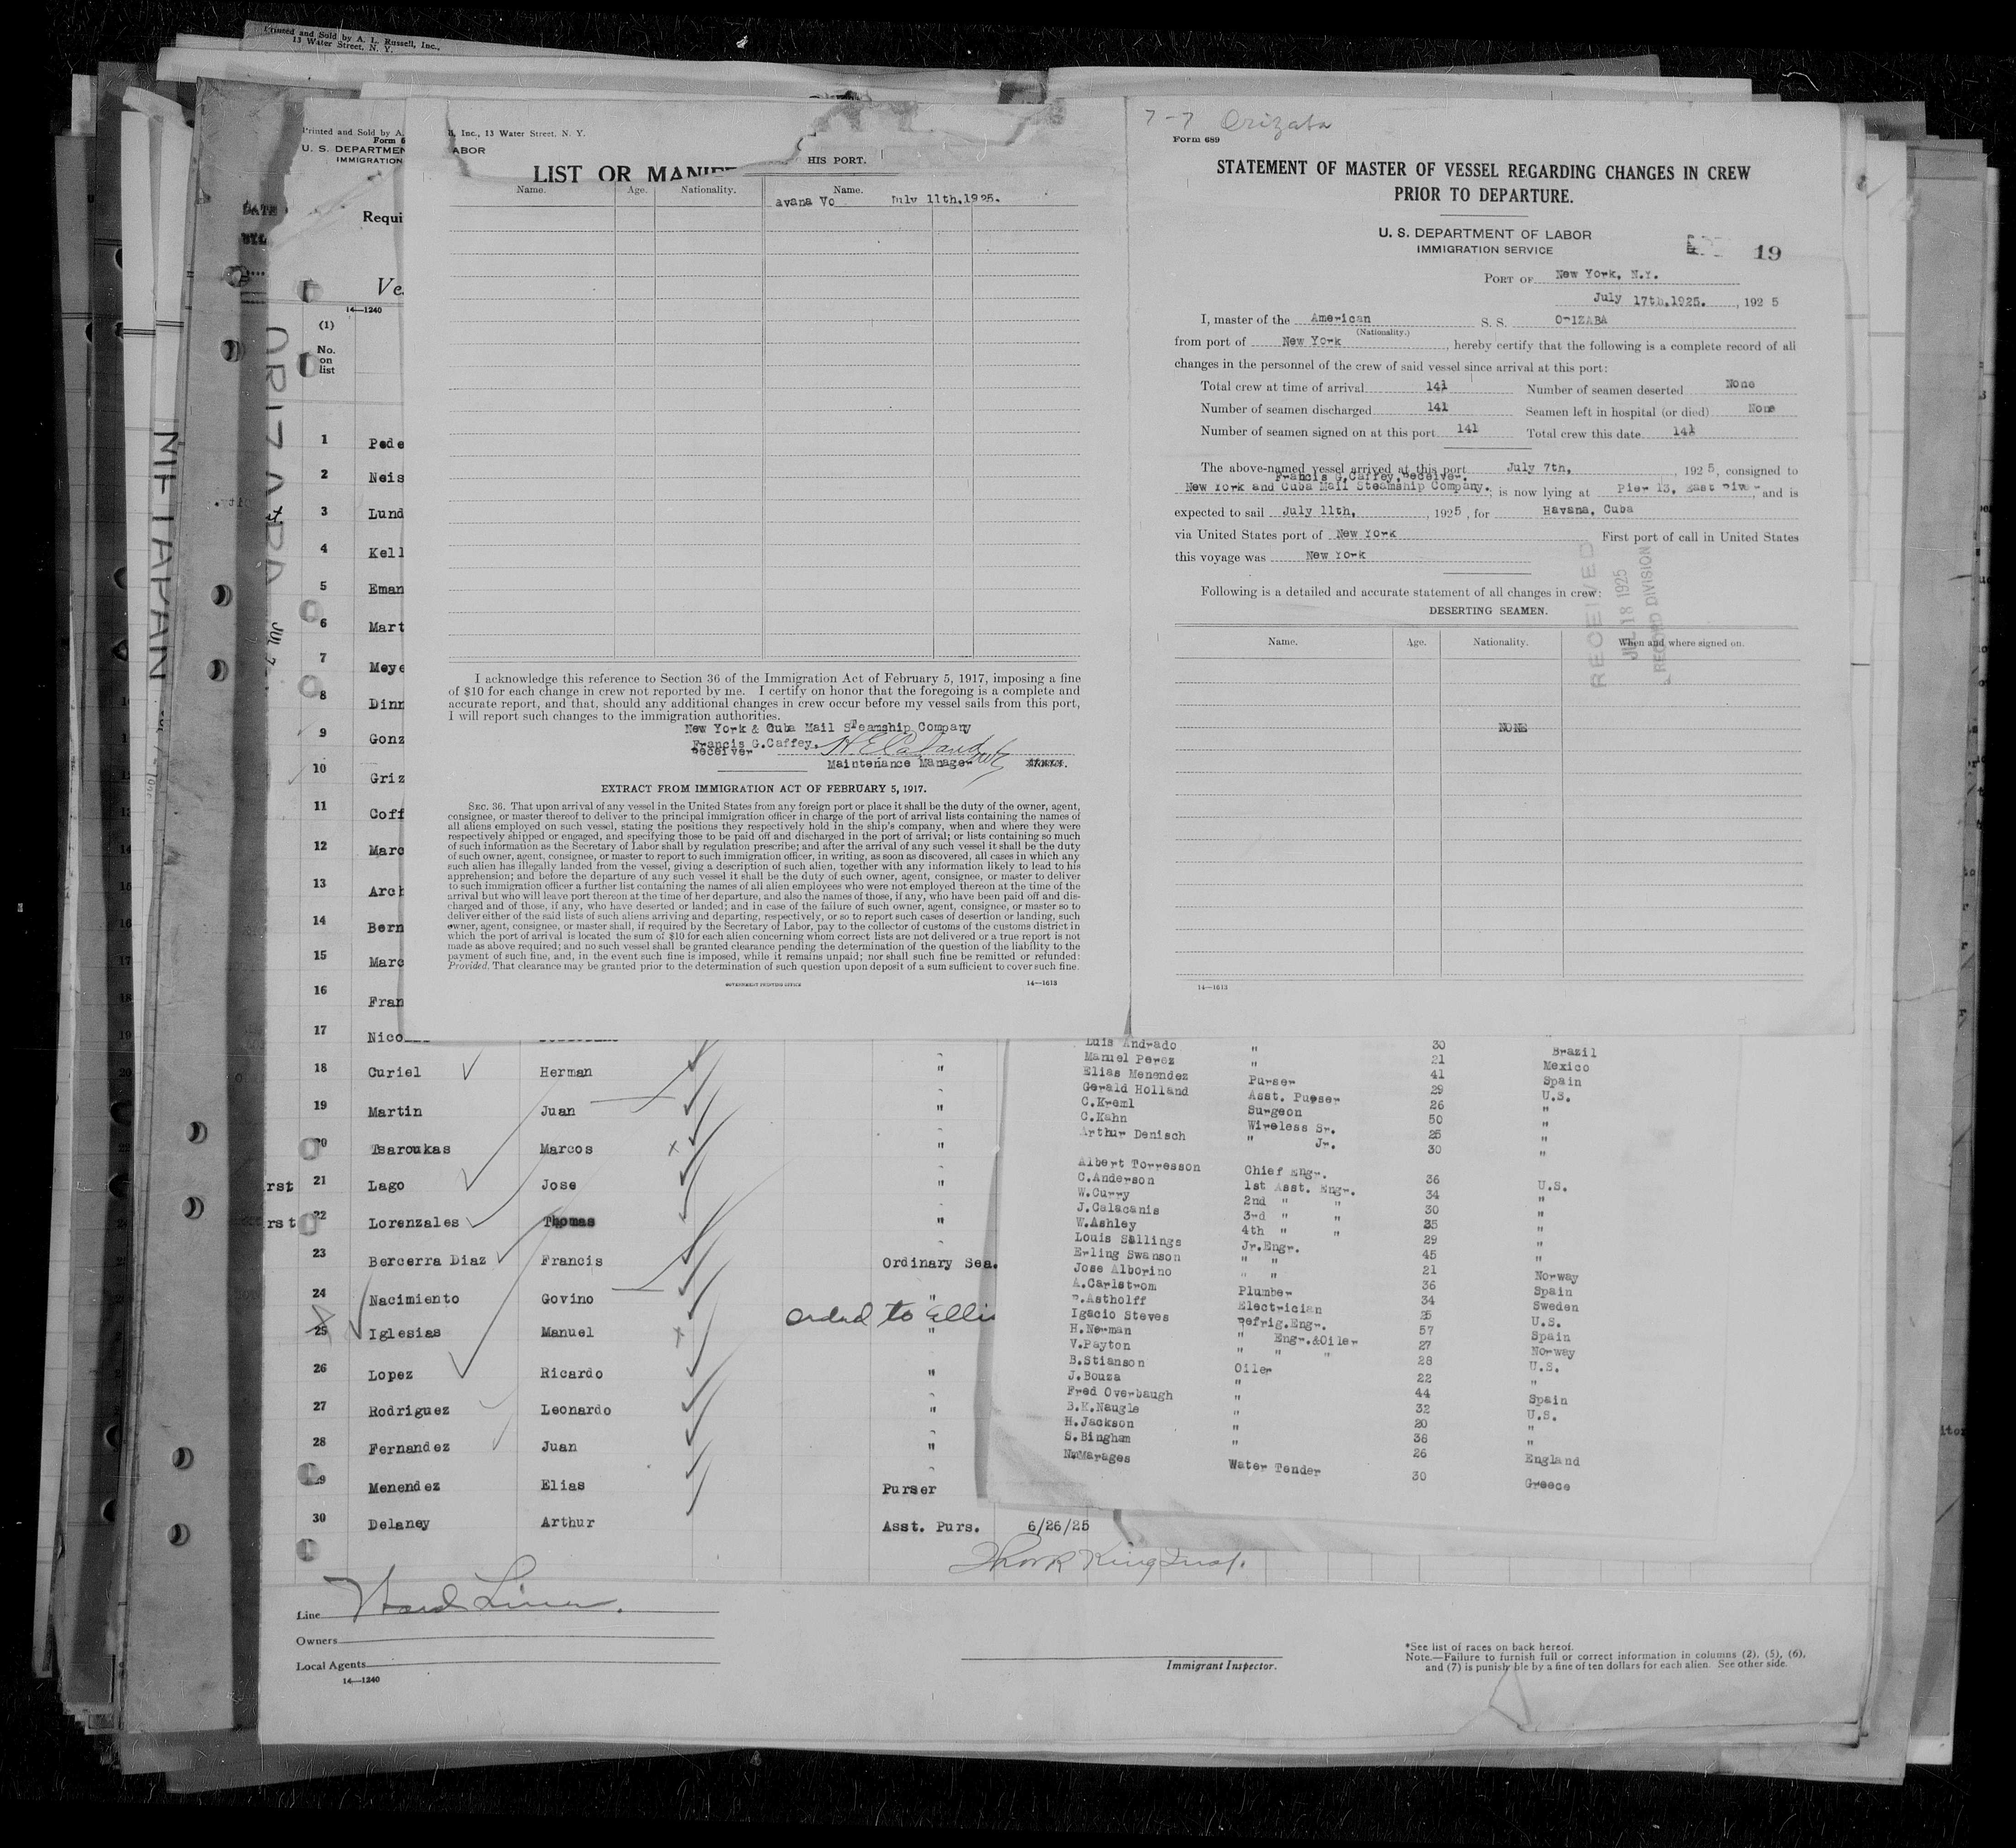 Printed and Sold by A. L. Russell, Inc.,
13 Water Street, N. Y.
Printed and Sold by A.
Form 6
U. S. DEPARTMEN
IMMIGRATION
DATE
Requi
Ve
14—1240
(1)
No.
on
list
ORIZABA
JUL 7
1 Pede
2 Neis
3 Lund
4 Kell
5 Eman
6 Mart
7 Meye
8 Dinn
9 Gonz
10 Griz
11 Coff
12 Marc
13 Arch
14 Bern
15 Marc
16 Fran
17 Nico
18 Curiel Herman "
19 Martin Juan "
20 Tsaroukas Marcos "
rst 21 Lago Jose "
rst 22 Lorenzales Thomas "
23 Bercerra Diaz Francis Ordinary Sea.
24 Nacimiento Govino "
25 Iglesias Manuel "
to Ellis
26 Lopez Ricardo "
27 Rodriguez Leonardo "
28 Fernandez Juan "
29 Menendez Elias Purser
30 Delaney Arthur Asst. Purs. 6/26/25
Line Ward Line.
Owners
Local Agents
14—1240
Immigrant Inspector.
*See list of races on back hereof.
Note.—Failure to furnish full or correct information in columns (2), (5), (6),
and (7) is punishable by a fine of ten dollars for each alien. See other side.
, Inc., 13 Water Street, N. Y.
ABOR
LIST OR MANIF
HIS PORT.
Name. Age. Nationality. Name.
avana Vo July 11th,1925.
I acknowledge this reference to Section 36 of the Immigration Act of February 5, 1917, imposing a fine
of $10 for each change in crew not reported by me. I certify on honor that the foregoing is a complete and
accurate report, and that, should any additional changes in crew occur before my vessel sails from this port,
I will report such changes to the immigration authorities.
New York & Cuba Mail Steamship Company
Francis G.Caffey,
Receiver
Maintenance Manager
EXTRACT FROM IMMIGRATION ACT OF FEBRUARY 5, 1917.
SEC. 36. That upon arrival of any vessel in the United States from any foreign port or place it shall be the duty of the owner, agent,
consignee, or master thereof to deliver to the principal immigration officer in charge of the port of arrival lists containing the names of
all aliens employed on such vessel, stating the positions they respectively hold in the ship's company, when and where they were
respectively shipped or engaged, and specifying those to be paid off and discharged in the port of arrival; or lists containing so much
of such information as the Secretary of Labor shall by regulation prescribe; and after the arrival of any such vessel it shall be the duty
of such owner, agent, consignee, or master to report to such immigration officer, in writing, as soon as discovered, all cases in which any
such alien has illegally landed from the vessel, giving a description of such alien, together with any information likely to lead to his
apprehension; and before the departure of any such vessel it shall be the duty of such owner, agent, consignee, or master to deliver
to such immigration officer a further list containing the names of all alien employees who were not employed thereon at the time of the
arrival but who will leave port thereon at the time of her departure, and also the names of those, if any, who have been paid off and dis-
charged and of those, if any, who have deserted or landed; and in case of the failure of such owner, agent, consignee, or master so to
deliver either of the said lists of such aliens arriving and departing, respectively, or so to report such cases of desertion or landing, such
owner, agent, consignee, or master shall, if required by the Secretary of Labor, pay to the collector of customs of the customs district in
which the port of arrival is located the sum of $10 for each alien concerning whom correct lists are not delivered or a true report is not
made as above required; and no such vessel shall be granted clearance pending the determination of the question of the liability to the
payment of such fine, and, in the event such fine is imposed, while it remains unpaid; nor shall such fine be remitted or refunded:
Provided, That clearance may be granted prior to the determination of such question upon deposit of a sum sufficient to cover such fine.
GOVERNMENT PRINTING OFFICE 14—1613
7-7 Orizaba
Form 689
STATEMENT OF MASTER OF VESSEL REGARDING CHANGES IN CREW
PRIOR TO DEPARTURE.
U. S. DEPARTMENT OF LABOR
IMMIGRATION SERVICE
19
PORT OF New York, N.Y.
July 17th,1925. , 1925
I, master of the American S. S. ORIZABA
(Nationality.)
from port of New York , hereby certify that the following is a complete record of all
changes in the personnel of the crew of said vessel since arrival at this port:
Total crew at time of arrival 141 Number of seamen deserted None
Number of seamen discharged 141 Seamen left in hospital (or died) None
Number of seamen signed on at this port 141 Total crew this date 141
The above-named vessel arrived at this port July 7th, , 1925, consigned to
Francis G.Caffey,Receiver.
New York and Cuba Mail Steamship Company. ; is now lying at Pier 13, East River, and is
expected to sail July 11th, , 1925, for Havana, Cuba
via United States port of New York First port of call in United States
this voyage was New York
RECEIVED
JUL 18 1925
RECORD DIVISION
Following is a detailed and accurate statement of all changes in crew:
DESERTING SEAMEN.
Name. Age. Nationality. When and where signed on.
NONE
14—1613
Luis Andrado " 30 Brazil
Manuel Perez " 21 Mexico
Elias Menendez Purser 41 Spain
Gerald Holland Asst. Purser 29 U.S.
C.Kreml Surgeon 26 "
C.Kahn Wireless Sr. 50 "
Arthur Denisch " Jr. 25 "
30 "
Albert Torresson Chief Engr. 36 U.S.
C.Anderson 1st Asst. Engr. 34 "
W.Curry 2nd " " 30 "
J.Calacanis 3rd " " 35 "
W.Ashley 4th " " 29 "
Louis Sallings Jr.Engr. 45 "
Erling Swanson " " 21 Norway
Jose Alborino " " 36 Spain
A.Carlstrom Plumber 34 Sweden
R.Astholff Electrician 25 U.S.
Igacio Steves Refrig.Engr. 57 Spain
H.Norman " Engr.&Oiler 27 Norway
V.Payton " " " 28 U.S.
B.Stianson Oiler 22 "
J.Bouza " 44 Spain
Fred Overbaugh " 32 U.S.
B.K.Naugle " 20 "
H.Jackson " 38 "
S.Bingham " 26 England
N.Marages Water Tender 30 Greece